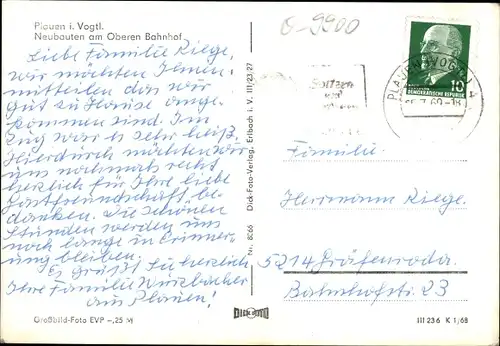 Plauen i. Vogtl.
Neubauten am Oberen Bahnhof
Liebe Familie Riege,
wir möchten Ihnen
mitteilen das wir
gut zu Hause ange-
kommen sind. Im
Zug war es sehr heiß.
Hierdurch möchten wir
uns nochmals recht
herzlich für Ihre liebe
Gastfreundschaft be-
danken. Die schönen
Stunden werden uns
noch lange in Erinner-
ung bleiben.
Es grüßt Sie herzlich
Ihre Familie Wirzbacher
aus Plauen!
Großbild-Foto EVP -,25 M
Nr. 8E66 Dick-Foto-Verlag, Erlbach i. V. III/23/27
DICK FOTO
0-9900
PLAUEN (VOGTL)
10
DEUTSCHE DEMOKRATISCHE REPUBLIK
Familie
Herrmann Riege.
5214 Gräfenroda
Bahnhofstr. 23
III 23 6 K 1/68